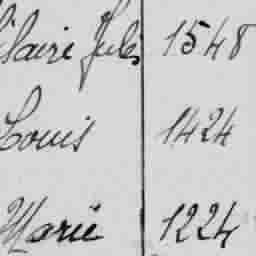 Hilaire Jules 1548
Louis 1424
Marie 1224